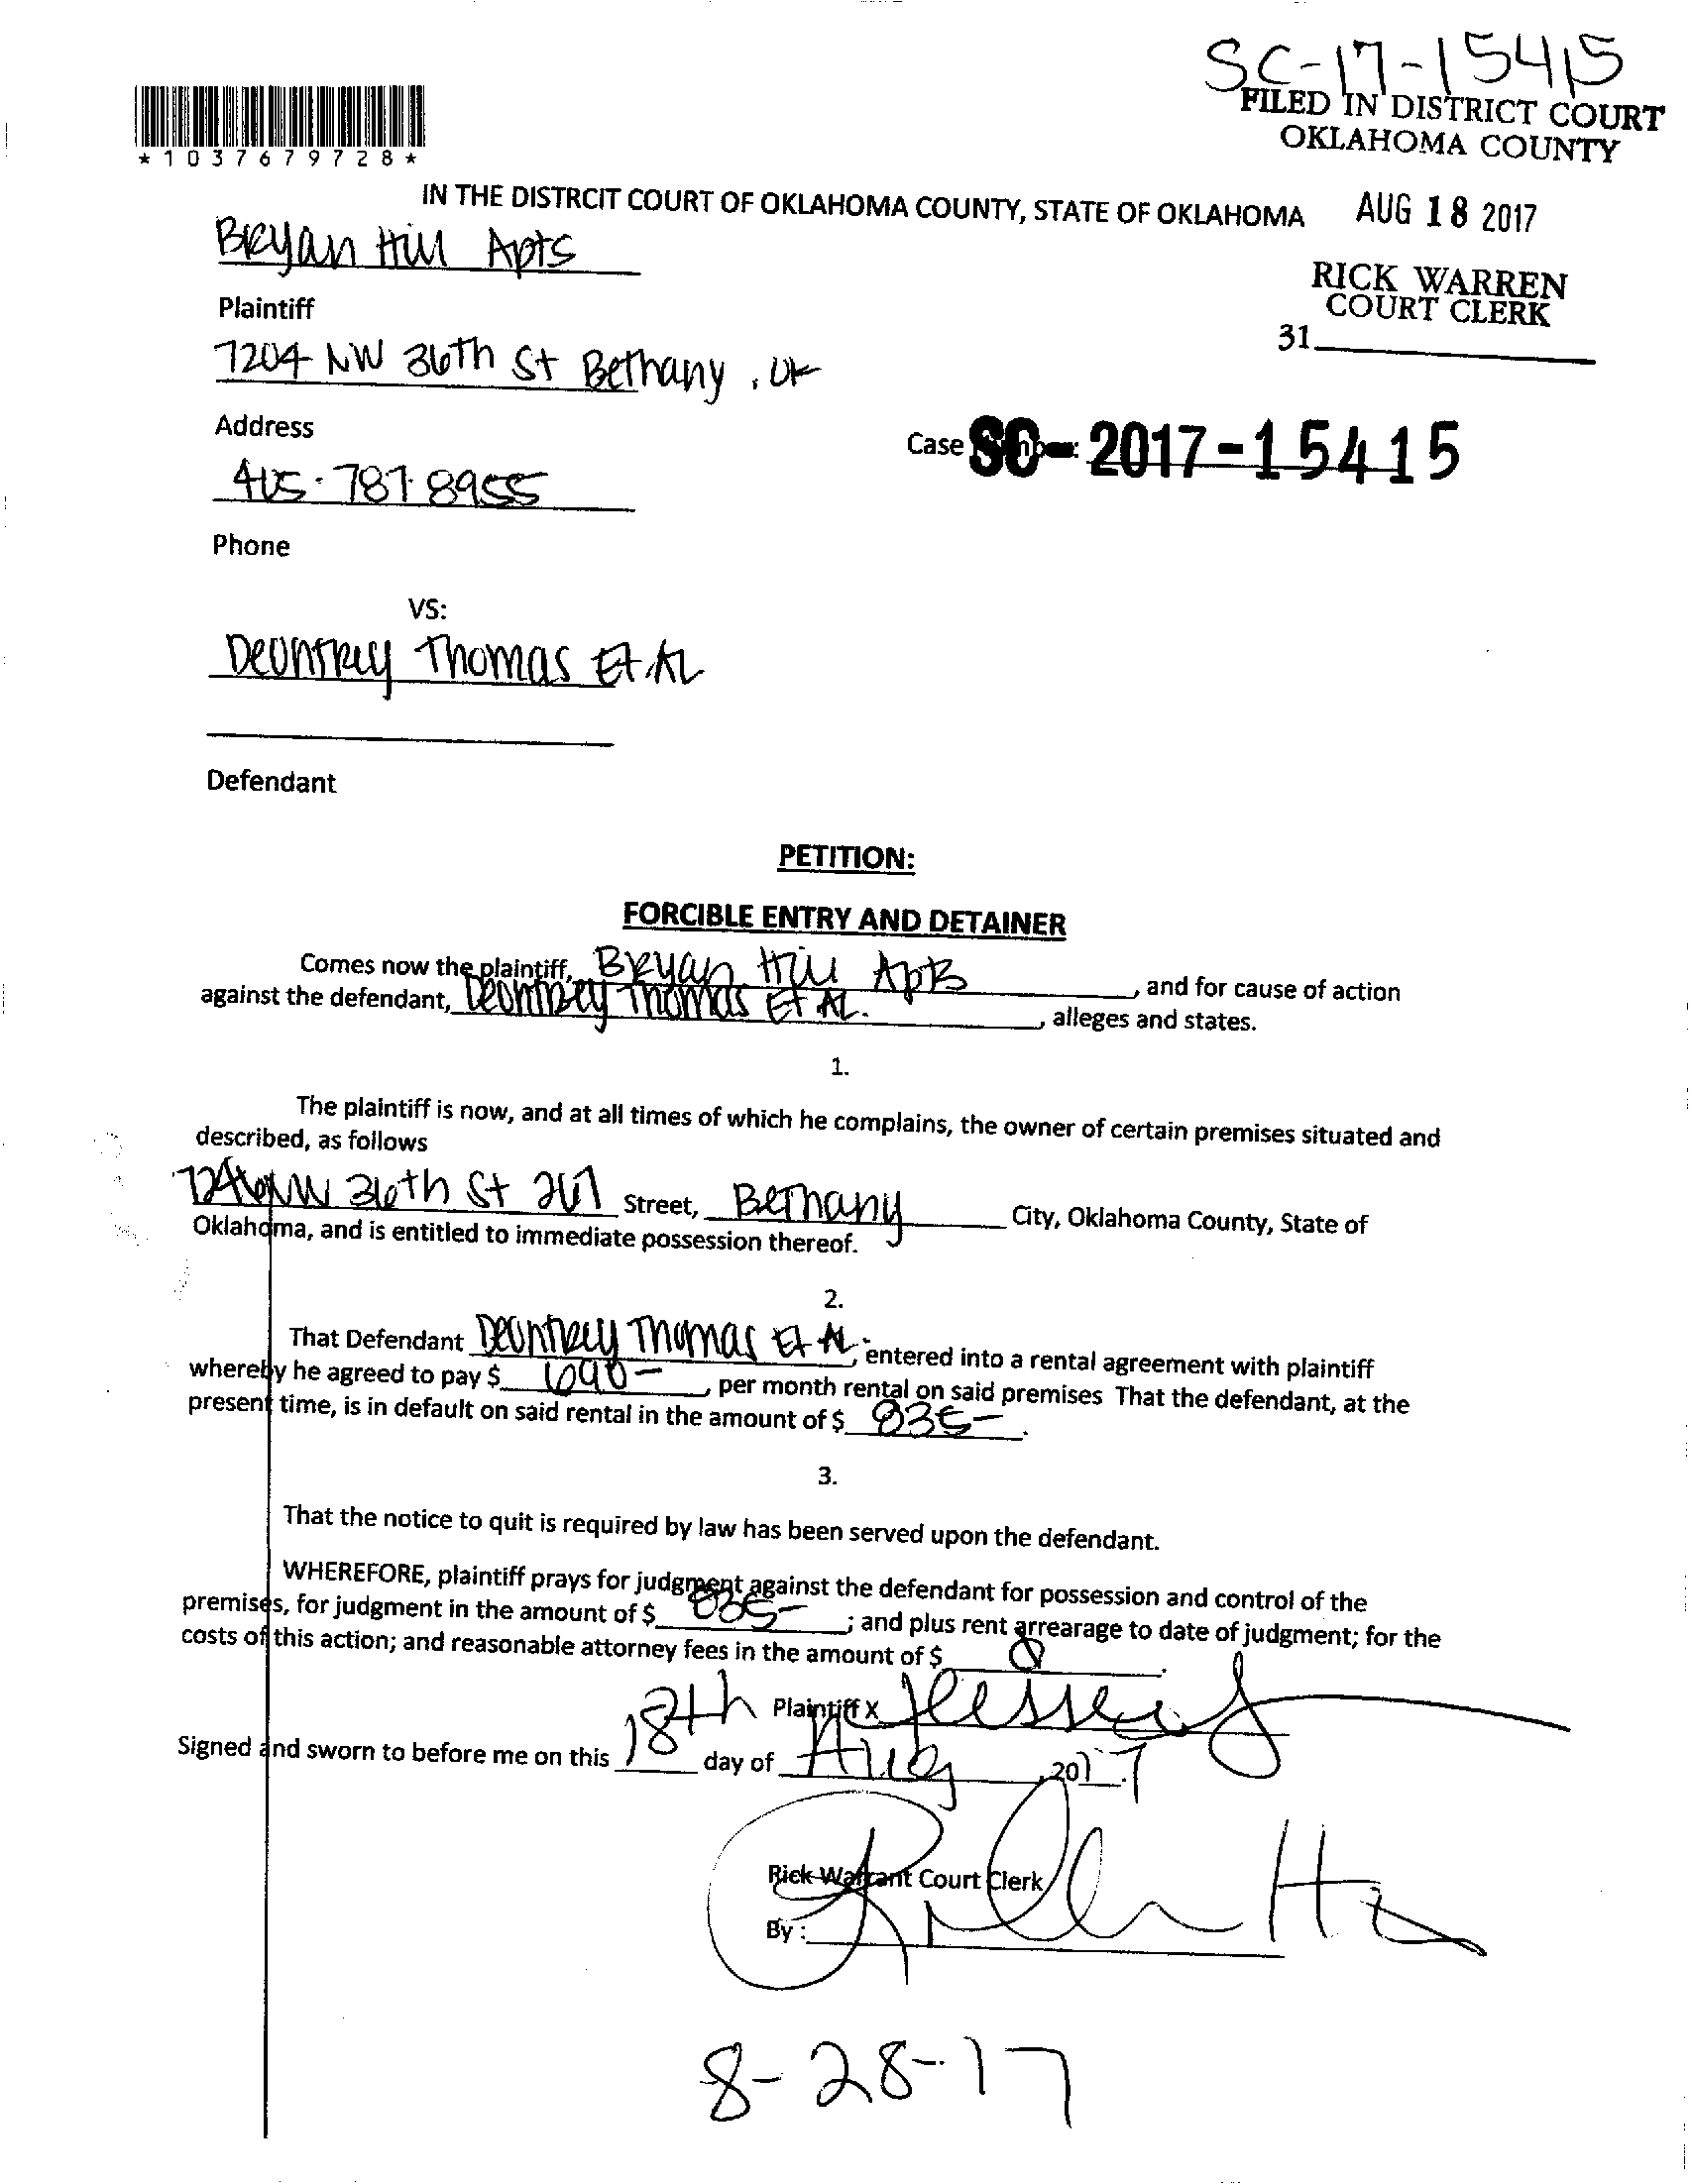 SC-17-15415
FILED IN DISTRICT COURT
OKLAHOMA COUNTY
*1037679728*
IN THE DISTRCIT COURT OF OKLAHOMA COUNTY, STATE OF OKLAHOMA
AUG 18 2017
Bryan Hill Apts
Plaintiff
RICK WARREN
COURT CLERK
31
7204 NW 36th St Bethany, OK
Address
Case SC-2017-15415
405-787-8955
Phone
VS:
Thomas Et. Al
Defendant
PETITION:
FORCIBLE ENTRY AND DETAINER
Comes now the plaintiff, Bryan Hill Apts, and for cause of action
against the defendant, Thomas Et Al., alleges and states.
1.
The plaintiff is now, and at all times of which he complains, the owner of certain premises situated and
described, as follows
NW 36th St Street, Bethany City, Oklahoma County, State of
Oklahoma, and is entitled to immediate possession thereof.
2.
That Defendant Thomas Et Al., entered into a rental agreement with plaintiff
whereby he agreed to pay $ 690-, per month rental on said premises That the defendant, at the
present time, is in default on said rental in the amount of $ 835-.
3.
That the notice to quit is required by law has been served upon the defendant.
WHEREFORE, plaintiff prays for judgment against the defendant for possession and control of the
premises, for judgment in the amount of $ 835-; and plus rent arrearage to date of judgment; for the
costs of this action; and reasonable attorney fees in the amount of $
Plaintiff X
Signed and sworn to before me on this 18th day of Aug, 2017
Rick Warrant Court Clerk
By:
8-28-17